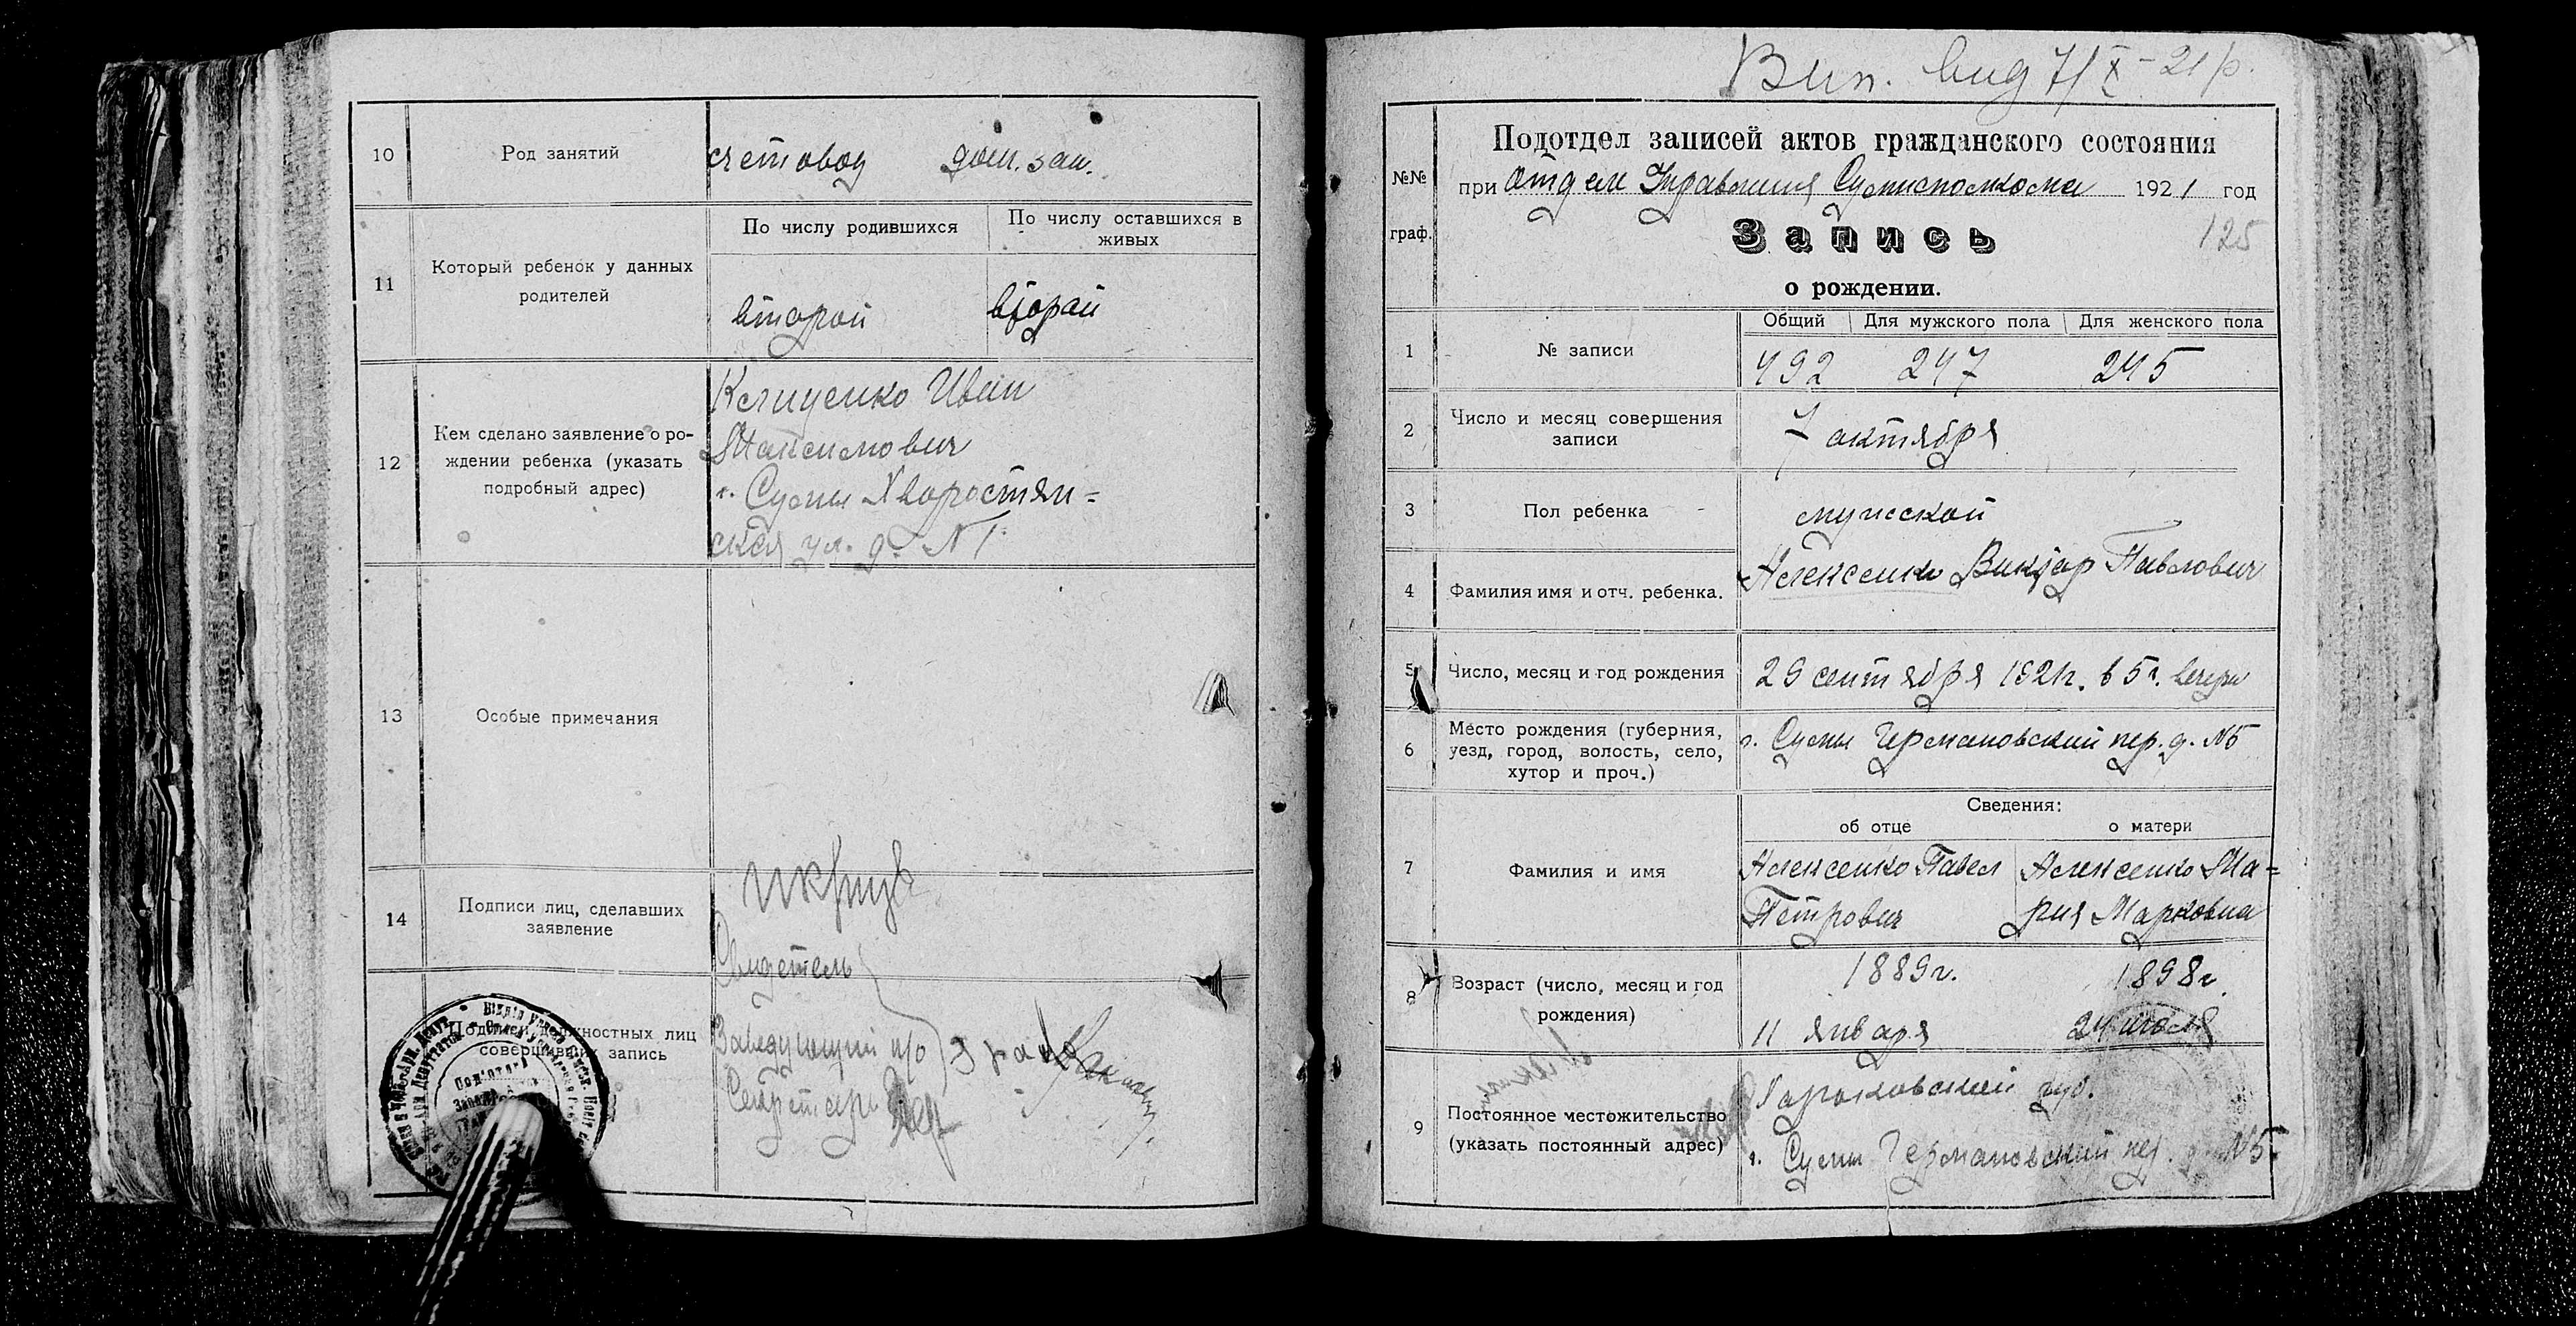 10 Род занятий счетовод дом. зан.
11 Который ребенок у данных родителей
По числу родившихся По числу оставшихся в живых
второй второй
12 Кем сделано заявление о ро-
ждении ребенка (указать
подробный адрес)
Иван
Максимович
г. Сумы Хворостян=
ская ул. д. № 1
13 Особые примечания
14 Подписи лиц, сделавших
заявление
Свидетель
Подписи должностных лиц
совершивших запись
Заведующий п/о
Секретарь
Вип. вид 7/X-21 р.
№№ граф.
Подотдел записей актов гражданского состояния
при Отделе Управления Сумисполкома 1921 год
125
Запись
о рождении.
Общий Для мужского пола Для женского пола
1 № записи 492 247 245
2 Число и месяц совершения
записи
7 октября
3 Пол ребенка мужской
4 Фамилия имя и отч. ребенка. Алексенко Виктор Павлович
5 Число, месяц и год рождения 29 сентября 1921 г. в 5 ч. вечера
6 Место рождения (губерния,
уезд, город, волость, село,
хутор и проч.)
г. Сумы Германовский пер. д. № 5
Сведения:
об отце о матери
7 Фамилия и имя
Алексенко Павел Алексенко Ма=
Петрович рия Марковна
8 Возраст (число, месяц и год
рождения)
1889 г. 1898 г.
11 января 24 июля
9 Постоянное местожительство
(указать постоянный адрес)
Харьковский губ.
г. Сумы Германовский пер. д. № 5